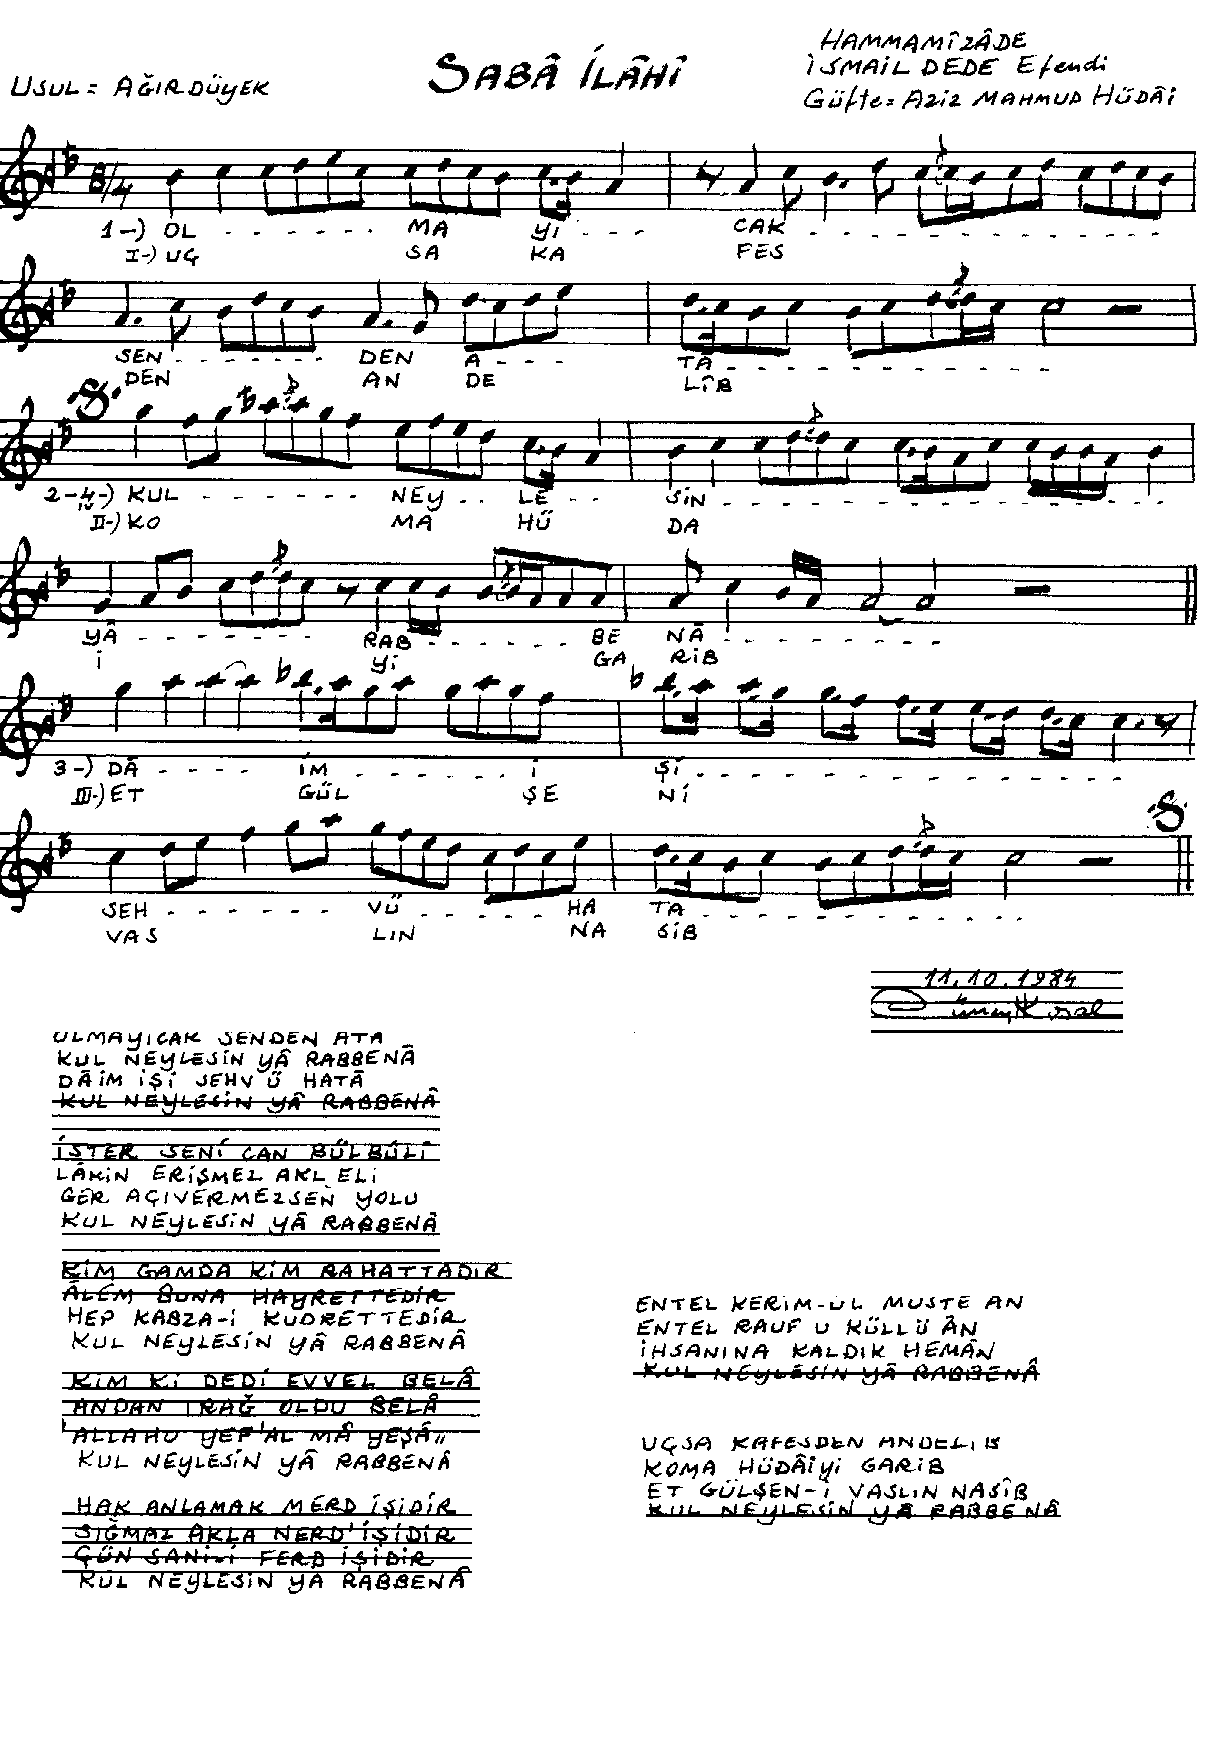 HAMMAMÎZÂDE
SABÂ İLÂHÎ
İSMAİL DEDE Efendi
USUL = AĞIRDÜYEK
Güfte = AZİZ MAHMUD HÜDÂİ
8/4
1-) OL - - - - - - MA - YI - - - CAK - - - - - - - - - - - - -
I-) UÇ SA KA FES
SEN - - - - - - - DEN A - - - TA - - - - - - - - - - - -
DEN AN DE LÎB
2-4-) KUL - - - - - - NEY - - LE - - SİN - - - - - - - - - - - - - - -
II-) IV KO MA HÜ DA
YÂ - - - - - - - - RAB - - - - - - BE NÂ - - - - - - - -
İ Yİ GA RİB
3-) DÂ - - - - İM - - - - - - İ Şİ - - - - - - - - - - - - - -
III-) ET GÜL ŞE Nİ
SEH - - - - - - - VÜ - - - - - HA TA - - - - - - - - - - -
VAS LIN NA SİB
11.10.1984
OLMAYICAK SENDEN ATA
KUL NEYLESİN YÂ RABBENÂ
DÂİM İŞİ SEHV Ü HATÂ
KUL NEYLESİN YÂ RABBENÂ
İSTER SENİ CAN BÜLBÜLİ
LÂKİN ERİŞMEZ AKL ELİ
GER AÇIVERMEZSEN YOLU
KUL NEYLESİN YÂ RABBENÂ
KİM GAMDA KİM RAHATTADIR
ÂLEM BUNA HAYRETTEDİR
HEP KABZA-İ KUDRETTEDİR
KUL NEYLESİN YÂ RABBENÂ
KİM Kİ DEDİ EVVEL BELÂ
ANDAN IRAĞ OLDU BELÂ
"ALLAHU YEF'AL MÂ YEŞÂ"
KUL NEYLESİN YÂ RABBENÂ
HAK ANLAMAK MERD İŞİDİR
SIĞMAZ AKLA NERD'İŞİDİR
ÇÜN SANİ-İ FERD İŞİDİR
KUL NEYLESİN YÂ RABBENÂ
ENTEL KERİM-ÜL MUSTE AN
ENTEL RAUF U KÜLLÜ ÂN
İHSANINA KALDIK HEMÂN
KUL NEYLESİN YÂ RABBENÂ
UÇSA KAFESDEN ANDELİB
KOMA HÜDÂİYİ GARİB
ET GÜLŞEN-İ VASLIN NASÎB
KUL NEYLESİN YÂ RABBENÂ